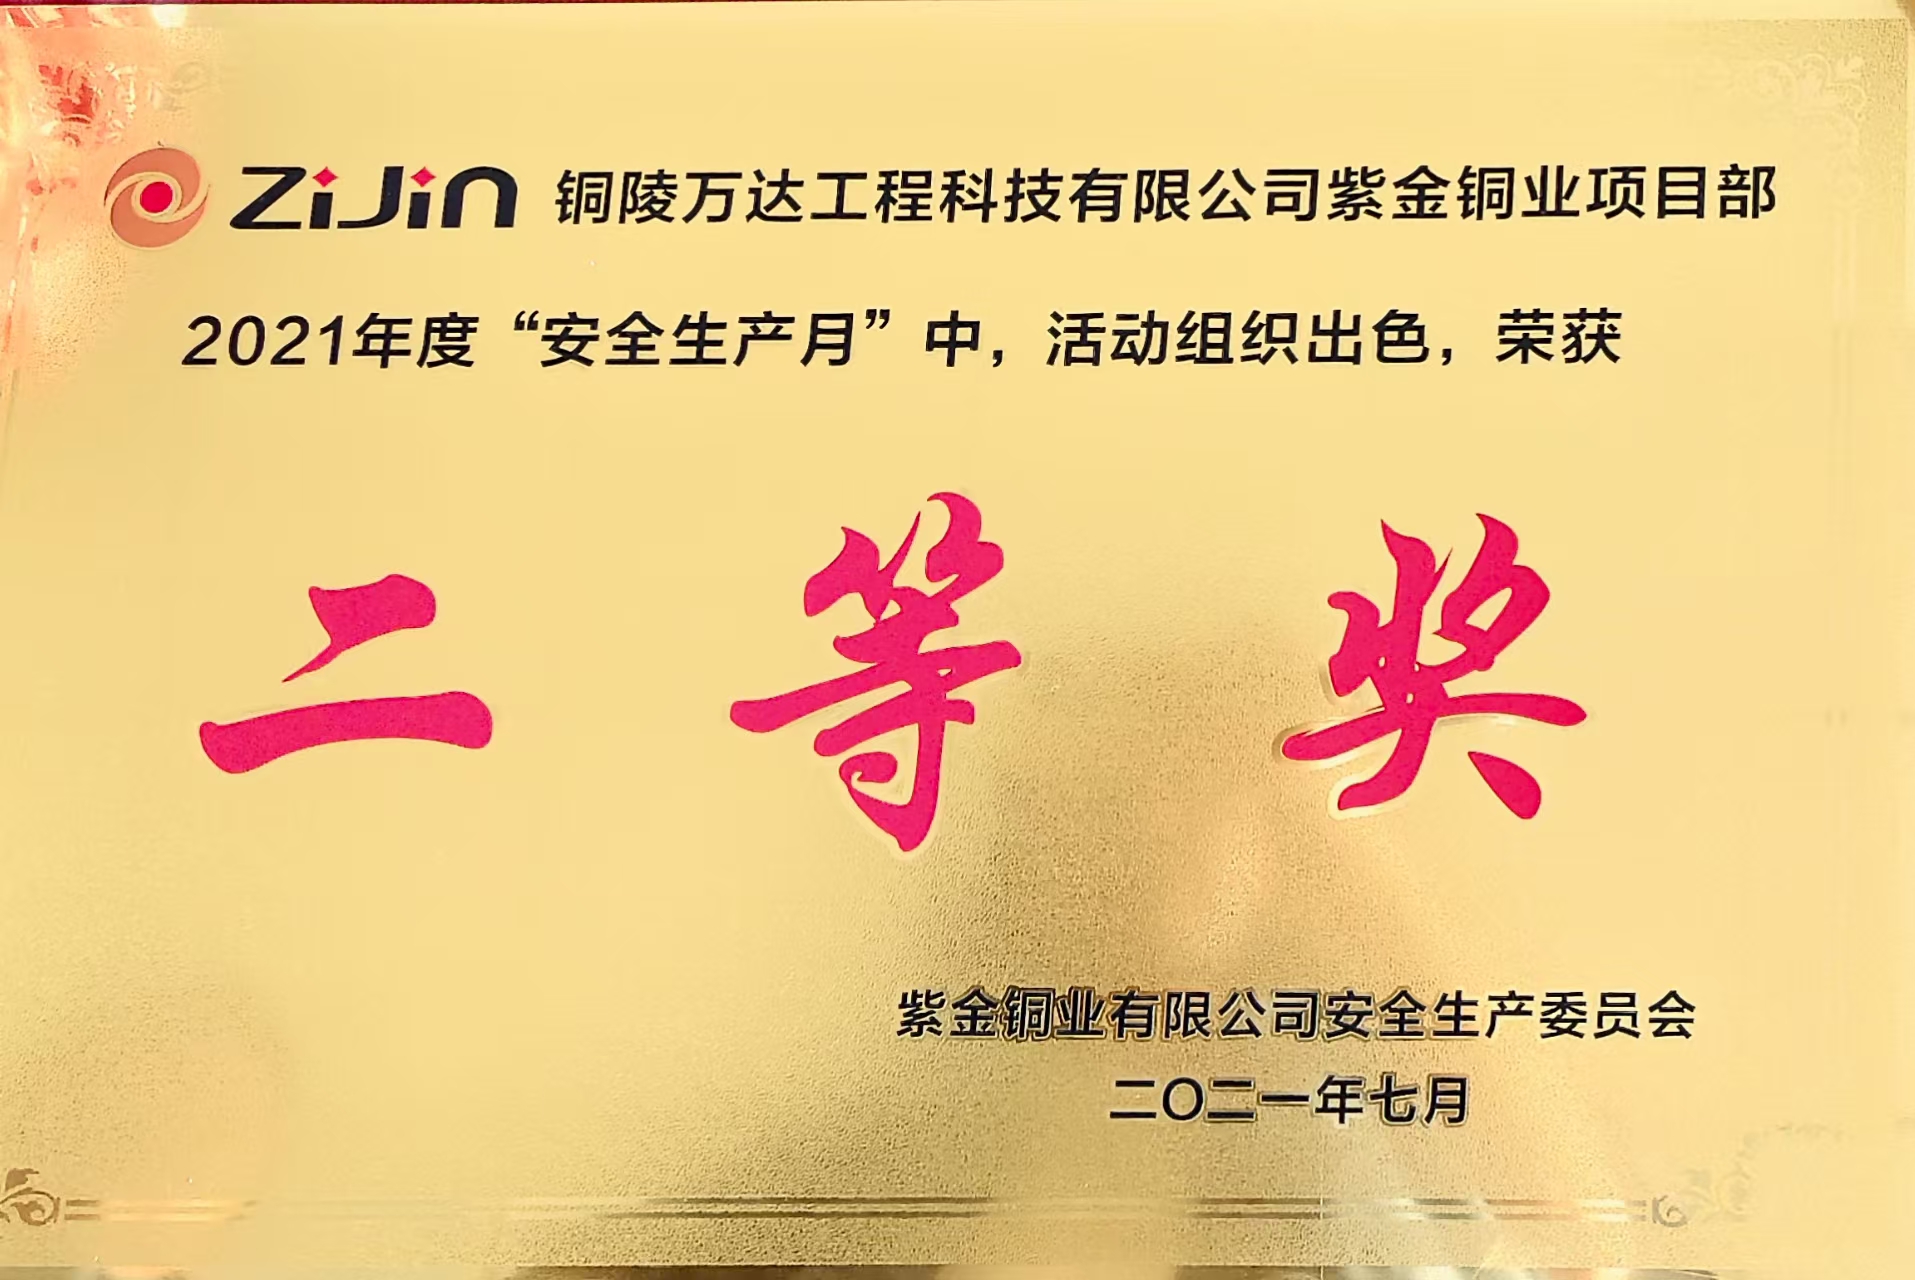 ZiJin 铜陵万达工程科技有限公司紫金铜业项目部
2021年度“安全生产月”中，活动组织出色，荣获
二等奖
紫金铜业有限公司安全生产委员会
二〇二一年七月